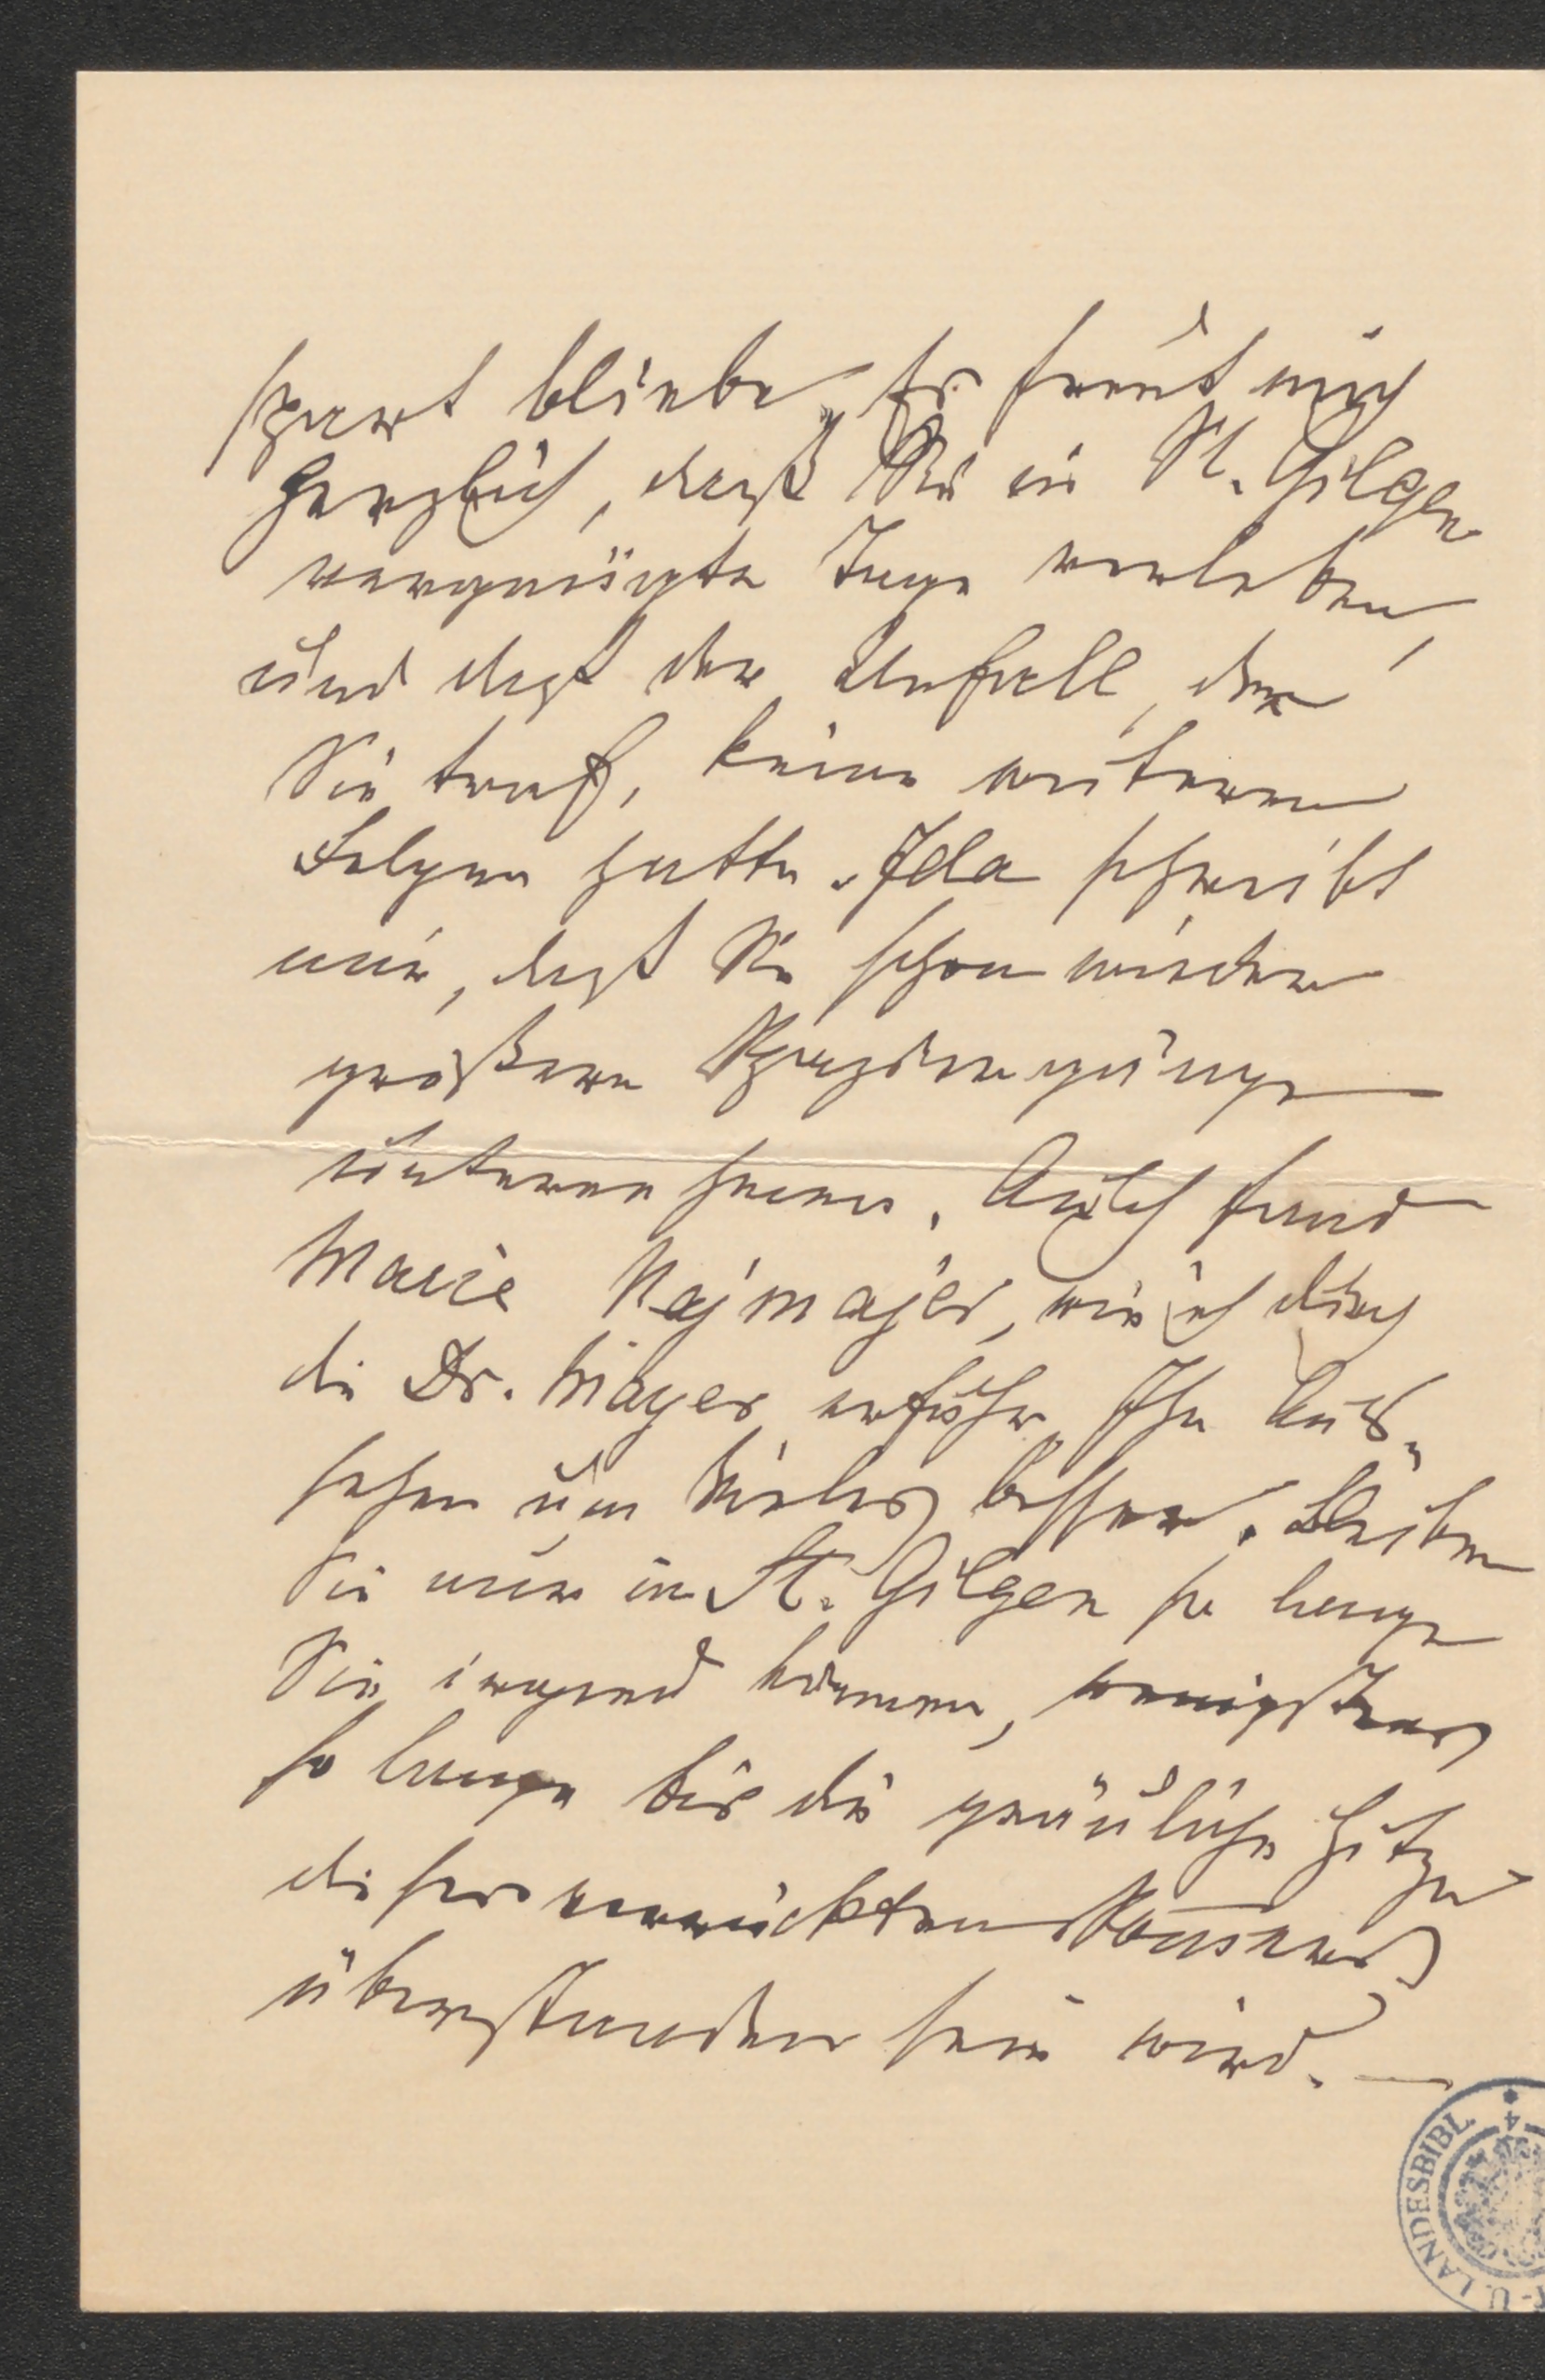 spart bliebe. Es freut mich
herzlich, daß Sie in St. Gilgen
vergnügte Tage verleben,
und daß der Unfall, der
Sie traf, keine weiteren
Folgen hatte. Ida schreibt
mir, daß Sie schon wieder
größere Spaziergänge
unternehmen. Auch fand
Marie Najmajer, wie ich durch
die Dr. Mayer erfuhr, Ihr Aus-
sehen um Vieles besser. Bleiben
Sie nur in St. Gilgen so lange
Sie irgend können, wenigstens
so lange bis die gräuliche Hitze
dieses verrückten Sommers
überstanden sein wird. —
LANDESBIBL.